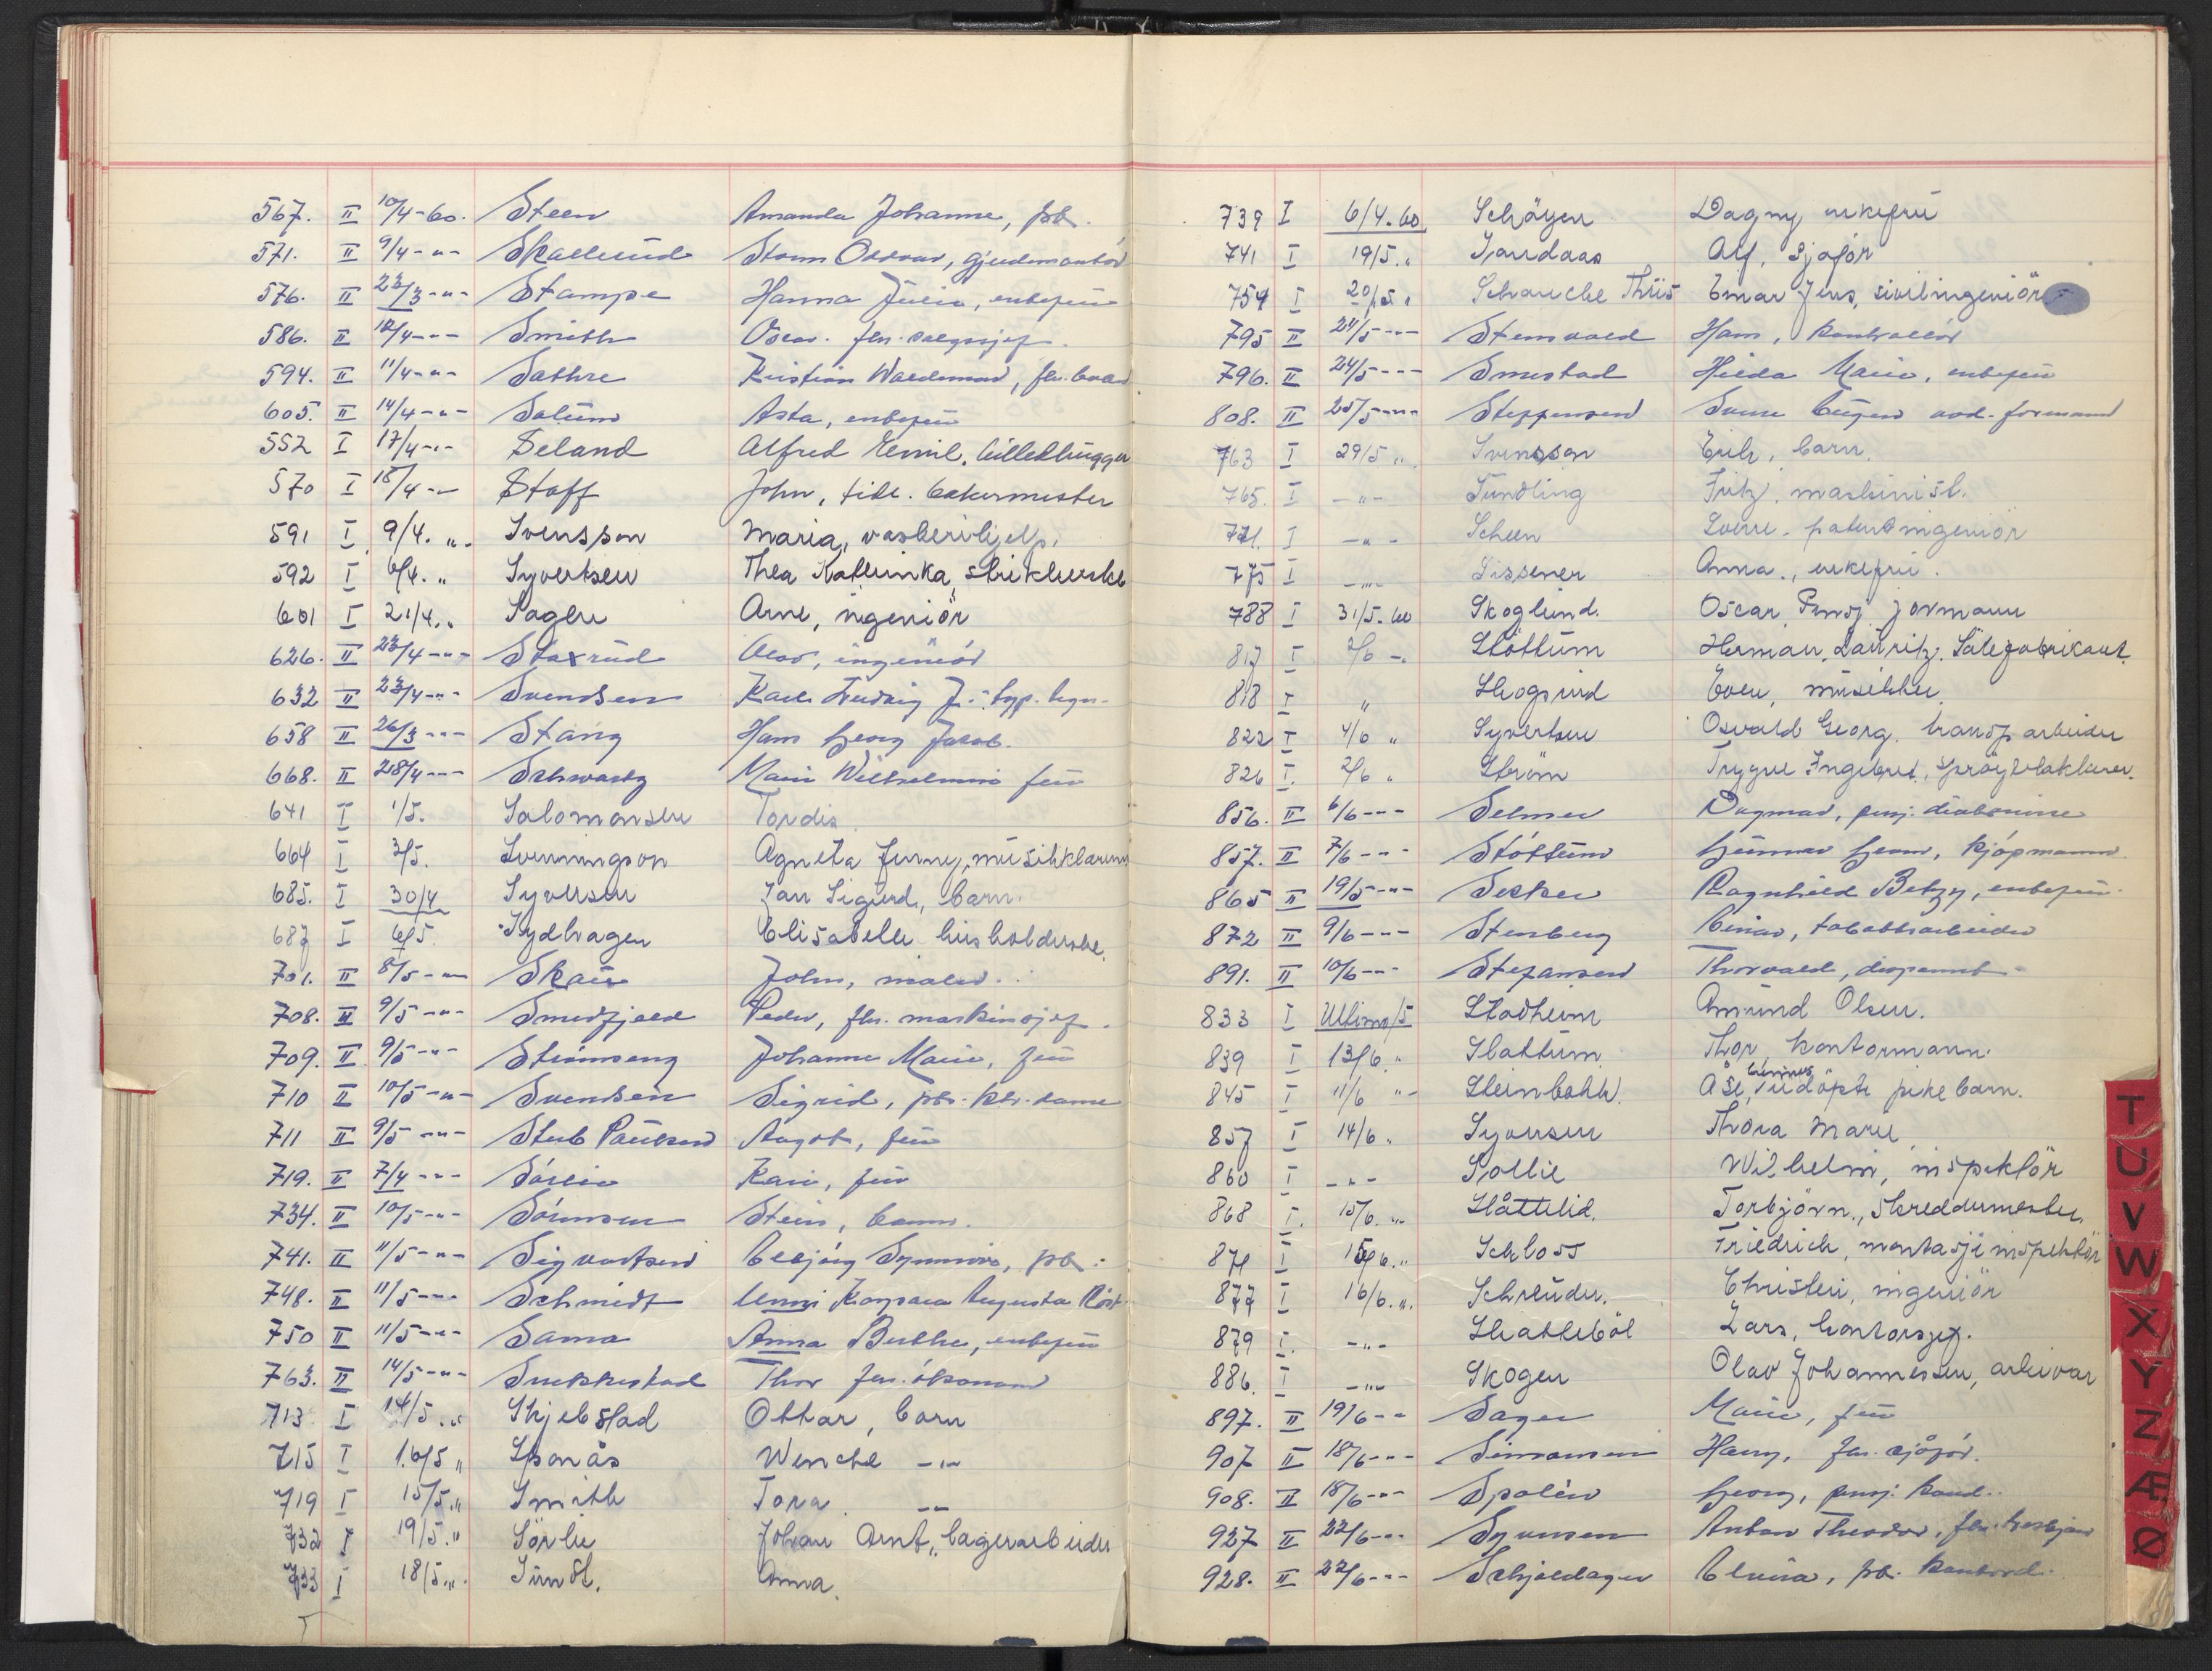 567. II 10/4-60. Steen Amanda Johanne, pb.
571. II 9/4-"- Skallerud
576. II 23/3-"- Stampe Hanna Julie, enkefru
586. II 12/4--- Smith Oscar. fhv. salgssjef.
594. II 11/4-"- Sathre Kristian Waldemar, fhv.
605. II 14/4-"- Solum Asta, enkefru
552 I 17/4-"- Seland Alfred Emil, billedhugger
570 I 18/4-"- Staff John, tidl. bakermester
591 I 9/4. „ Svensson Maria, vaskerihjelp.
592 I 6/4. „ Syvertsen Thea Kathinka, strikkerske
601 I 21/4. „ Sagen Arne, ingeniör
626. II 23/4-"- Staxrud Olav, ingeniör
632 II 23/4-"- Svendsen Karl Ludvig
658 II 26/3--- Stang Hans Georg Jacob.
668. II 28/4--- Schwartz Marie Wilhelmine fru
641 I 1/5. Salomonsen Tordis
664 I 3/5. Svenningson Agneta Jenny,
685. I 30/4 Syversen Jan Sigurd, barn.
687 I 6/5. Sydhagen Elisabeth husholderske.
701. II 8/5-"- Skau John, maler.
708. II 9/5-"- Smedfjeld Peder, fhv. maskinsjef.
709. II 9/5-"- Strömseng Johanne Marie, fru
710 II 10/5-"- Svendsen Sigrid, pb. ktr. dame
711 II 9/5-"- Stub Paulsen Aagot, fru
719. II 7/4--- Sörlie Kari, fru
734. II 10/5-"- Sörensen Stein, barn.
741. II 11/5-"- Sigvartsen Asbjörg Synnöve, pb.
748. II 11/5-"- Schmidt
750 II 11/5-"- Sama Anna Berthe, enkefru
763. II 14/5-"- Snekkestad Thor fhv. ökonom
713 I 14/5. „ Skjelstad Ottar, barn
715 I 16/5 „ Sponås Wenche -"-
719 I 15/5. „ Smith Tora -"-
732 I 19/5. „ Sörlie Johan Arnt, lagerarbeider
733 I 18/5. „ Sundt. Anna.
739 I 6/4.60 Schöyen Dagny enkefru
741 I 19/5. „ Sandaas Alf, sjåför
754 I 20/5. „ Schanche Thiis Einar Jens, sivilingeniör
795 II 24/5--- Stensvold Hans, kontrollör
796. II 24/5--- Smestad Hilda Marie, enkefru
808. II 25/5-"- Steffensen Sverre Eugen avd. formann
763 I 29/5 „ Svensson Erik, barn.
765. I -"- Sundling Fritz, maskinist.
771. I -"- Scheen Sverre. patentingeniör
775 I -"- Sissener Anna., enkefru.
788 I 31/5.60 Skoglund. Oscar, Pensj. formann
817 I 2/6 -„ Slöttum Herman, Lauritz. Såtefabrikant.
818 I „ Skogsrud Even, musiker
822 I 4/6 „ Syvertsen Osvald Georg. transp arbeider
826 I. 2/6 „ Ström Trygve Ingebret, spröytelakkerer.
856. II 6/6--- Selmer Dagmar, pensj. diakonisse
857. II 7/6--- Stöttum Gunnar Georg, kjöpmann
865 II 19/5-"- Secher Ragnhild Betzy, enkefru.
872 II 9/6--- Stenberg Einar, tobakksarbeider
891. II 10/6--- Stefansen Thorvald, disponent
833 I Ultimo/5 Stadheim Amund Olsen.
839 I 13/6. „ Slattum Thor, kontormann.
845 I 11/6 "- Steinbakk Åse, udöpte pikebarn.
857 I 14/6. „ Syversen Thora Marie
860 I -"- Sollie Wilhelm, inspektör
868 I. 15/6. „ Slåttelid. Torbjörn., Skreddermester.
871 I 15/6. „ Schloss Friedrich, montasjeinspektör
877 I 16/6. „. Schreuder. Christen, ingeniör
879 I. -"- Skatteböl Lars, kontorsjef.
886. I -"- Skogen Olav Johannessen, arkivar
897. II 19/6-- Sager Marie, fru
907 II 18/6-"- Simonsen Harry, fhv. sjåför.
908. II 18/6--- Spolén Georg, pensj. kond.
927 II 22/6--- Syversen Anton Theodor, fhv.
928. II 22/6--- Schjoldager Elvira, pb. kontord.
T
U
V
W
X
Y
Z
Æ
Ø